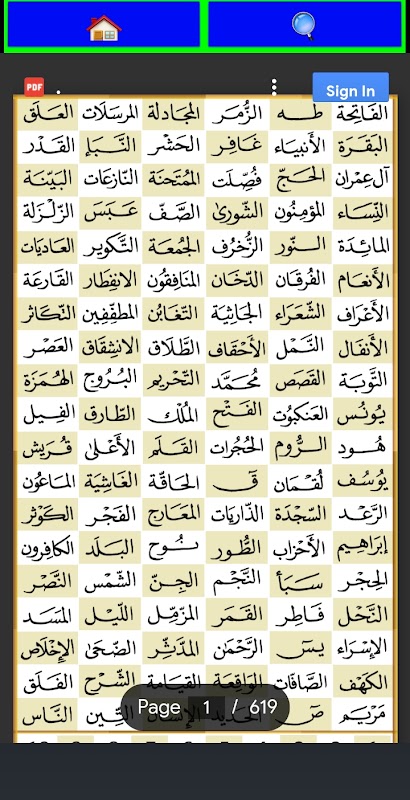 PDF
Sign In
الفَاتِحَة طــه الزُّمَر المجَادلة المرسَلَات العَلَق
البَقَرَة الأنبيَاء غَافِر الحَشْر النَّبَإ القَدْر
آل عِمْران الحَجّ فصِّلَت الممْتَحنَة النّازعَات البَيّنَة
النِّسَاء المؤمِنُون الشّورىٰ الصَّفّ عَبَسَ الزّلزَلة
المائِدَة النّور الزّخْرُف الجُمعَة التَّكوِير العَاديَات
الأنعَام الفُرقَان الدّخَان المنَافِقُون الانفِطَار القَارعَة
الأعْرَاف الشّعَرَاء الجَاثيَة التغَابُن المطفّفِين التّكاثر
الأنفَال النَّمْل الأحْقاف الطَّلَاق الانشِقَاق العَصْر
التَّوبَة القَصَص مُحَمَّد التّحْريم البُرُوج الهُمَزَة
يُونُس العَنكبُوت الفَتْح المُلْك الطّارق الفِيل
هُود الرُّوم الحُجُرات القَلَم الأعْلىٰ قُرَيش
يُوسُف لقمَان قٓ الحَاقّة الغَاشِيَة الماعُون
الرَّعْد السّجْدَة الذّاريَات المعَارج الفَجْر الكَوْثر
إبراهِيم الأحْزاب الطُّور نُوح البَلَد الكافِرون
الحِجْر سَبَأ النَّجْم الجِنّ الشّمْس النَّصْر
النَّحْل فَاطِر القَمَر المزّمِّل اللّيْل المسَد
الإسْرَاء يسٓ الرَّحْمَن المدّثِّر الضّحَىٰ الإخْلَاص
الكَهْف الصَّافَّات الوَاقِعَة القيَامَة الشّرْح الفَلَق
مَريَم صٓ الحَديد الإنسَان التِّين النَّاس
Page 1 / 619